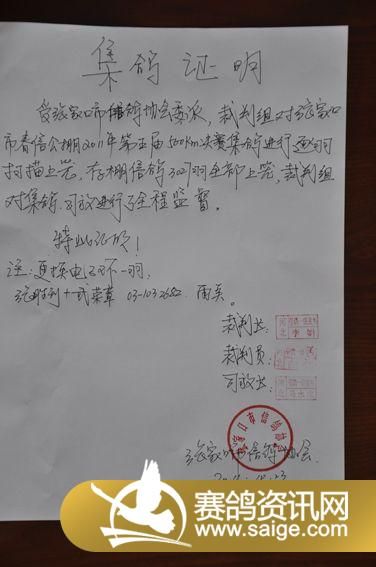 集鸽证明
受张家口市信鸽协会委派，裁判组对张家口
市春信公棚2011年第五届500km决赛集鸽进行逐羽
扫描上笼，存棚信鸽327羽全部上笼，裁判组
对集鸽、司放进行了全程监督。
特此证明！
注：更换电子环一羽，
03-1032682 雨点。
裁判长：
裁判员：
司放长：
张家口市信鸽协会
赛鸽资讯网
www.saige.com